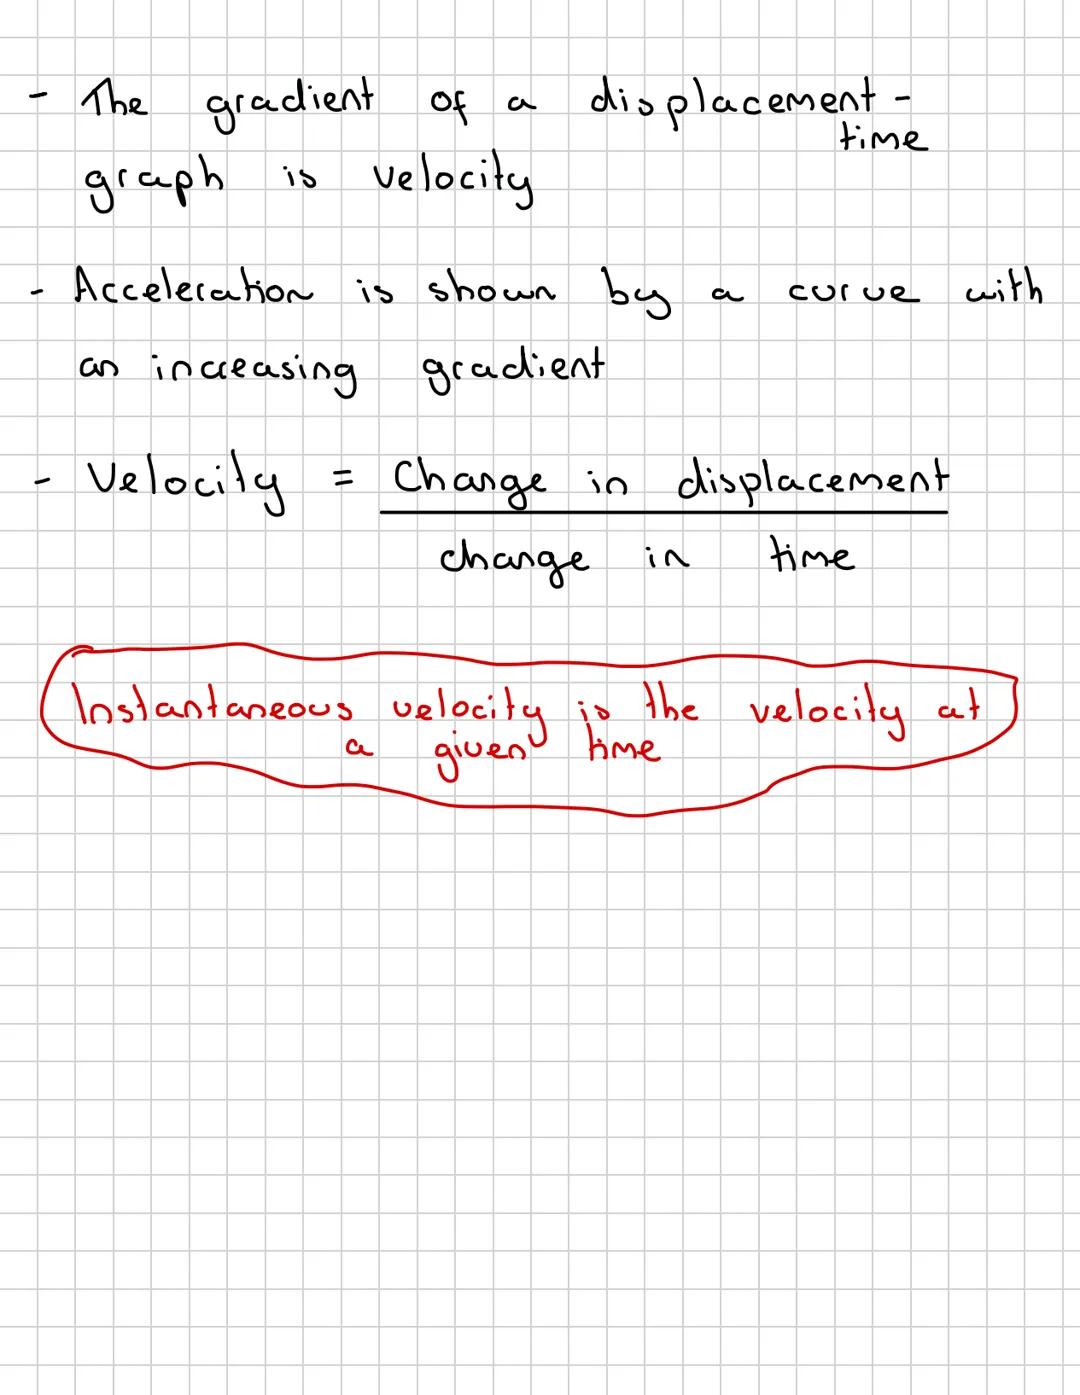 - The gradient of a displacement -
time
graph is velocity
- Acceleration is shown by a curve with
an increasing gradient
- Velocity = Change in displacement
change in time
Instantaneous velocity is the velocity at
a given time